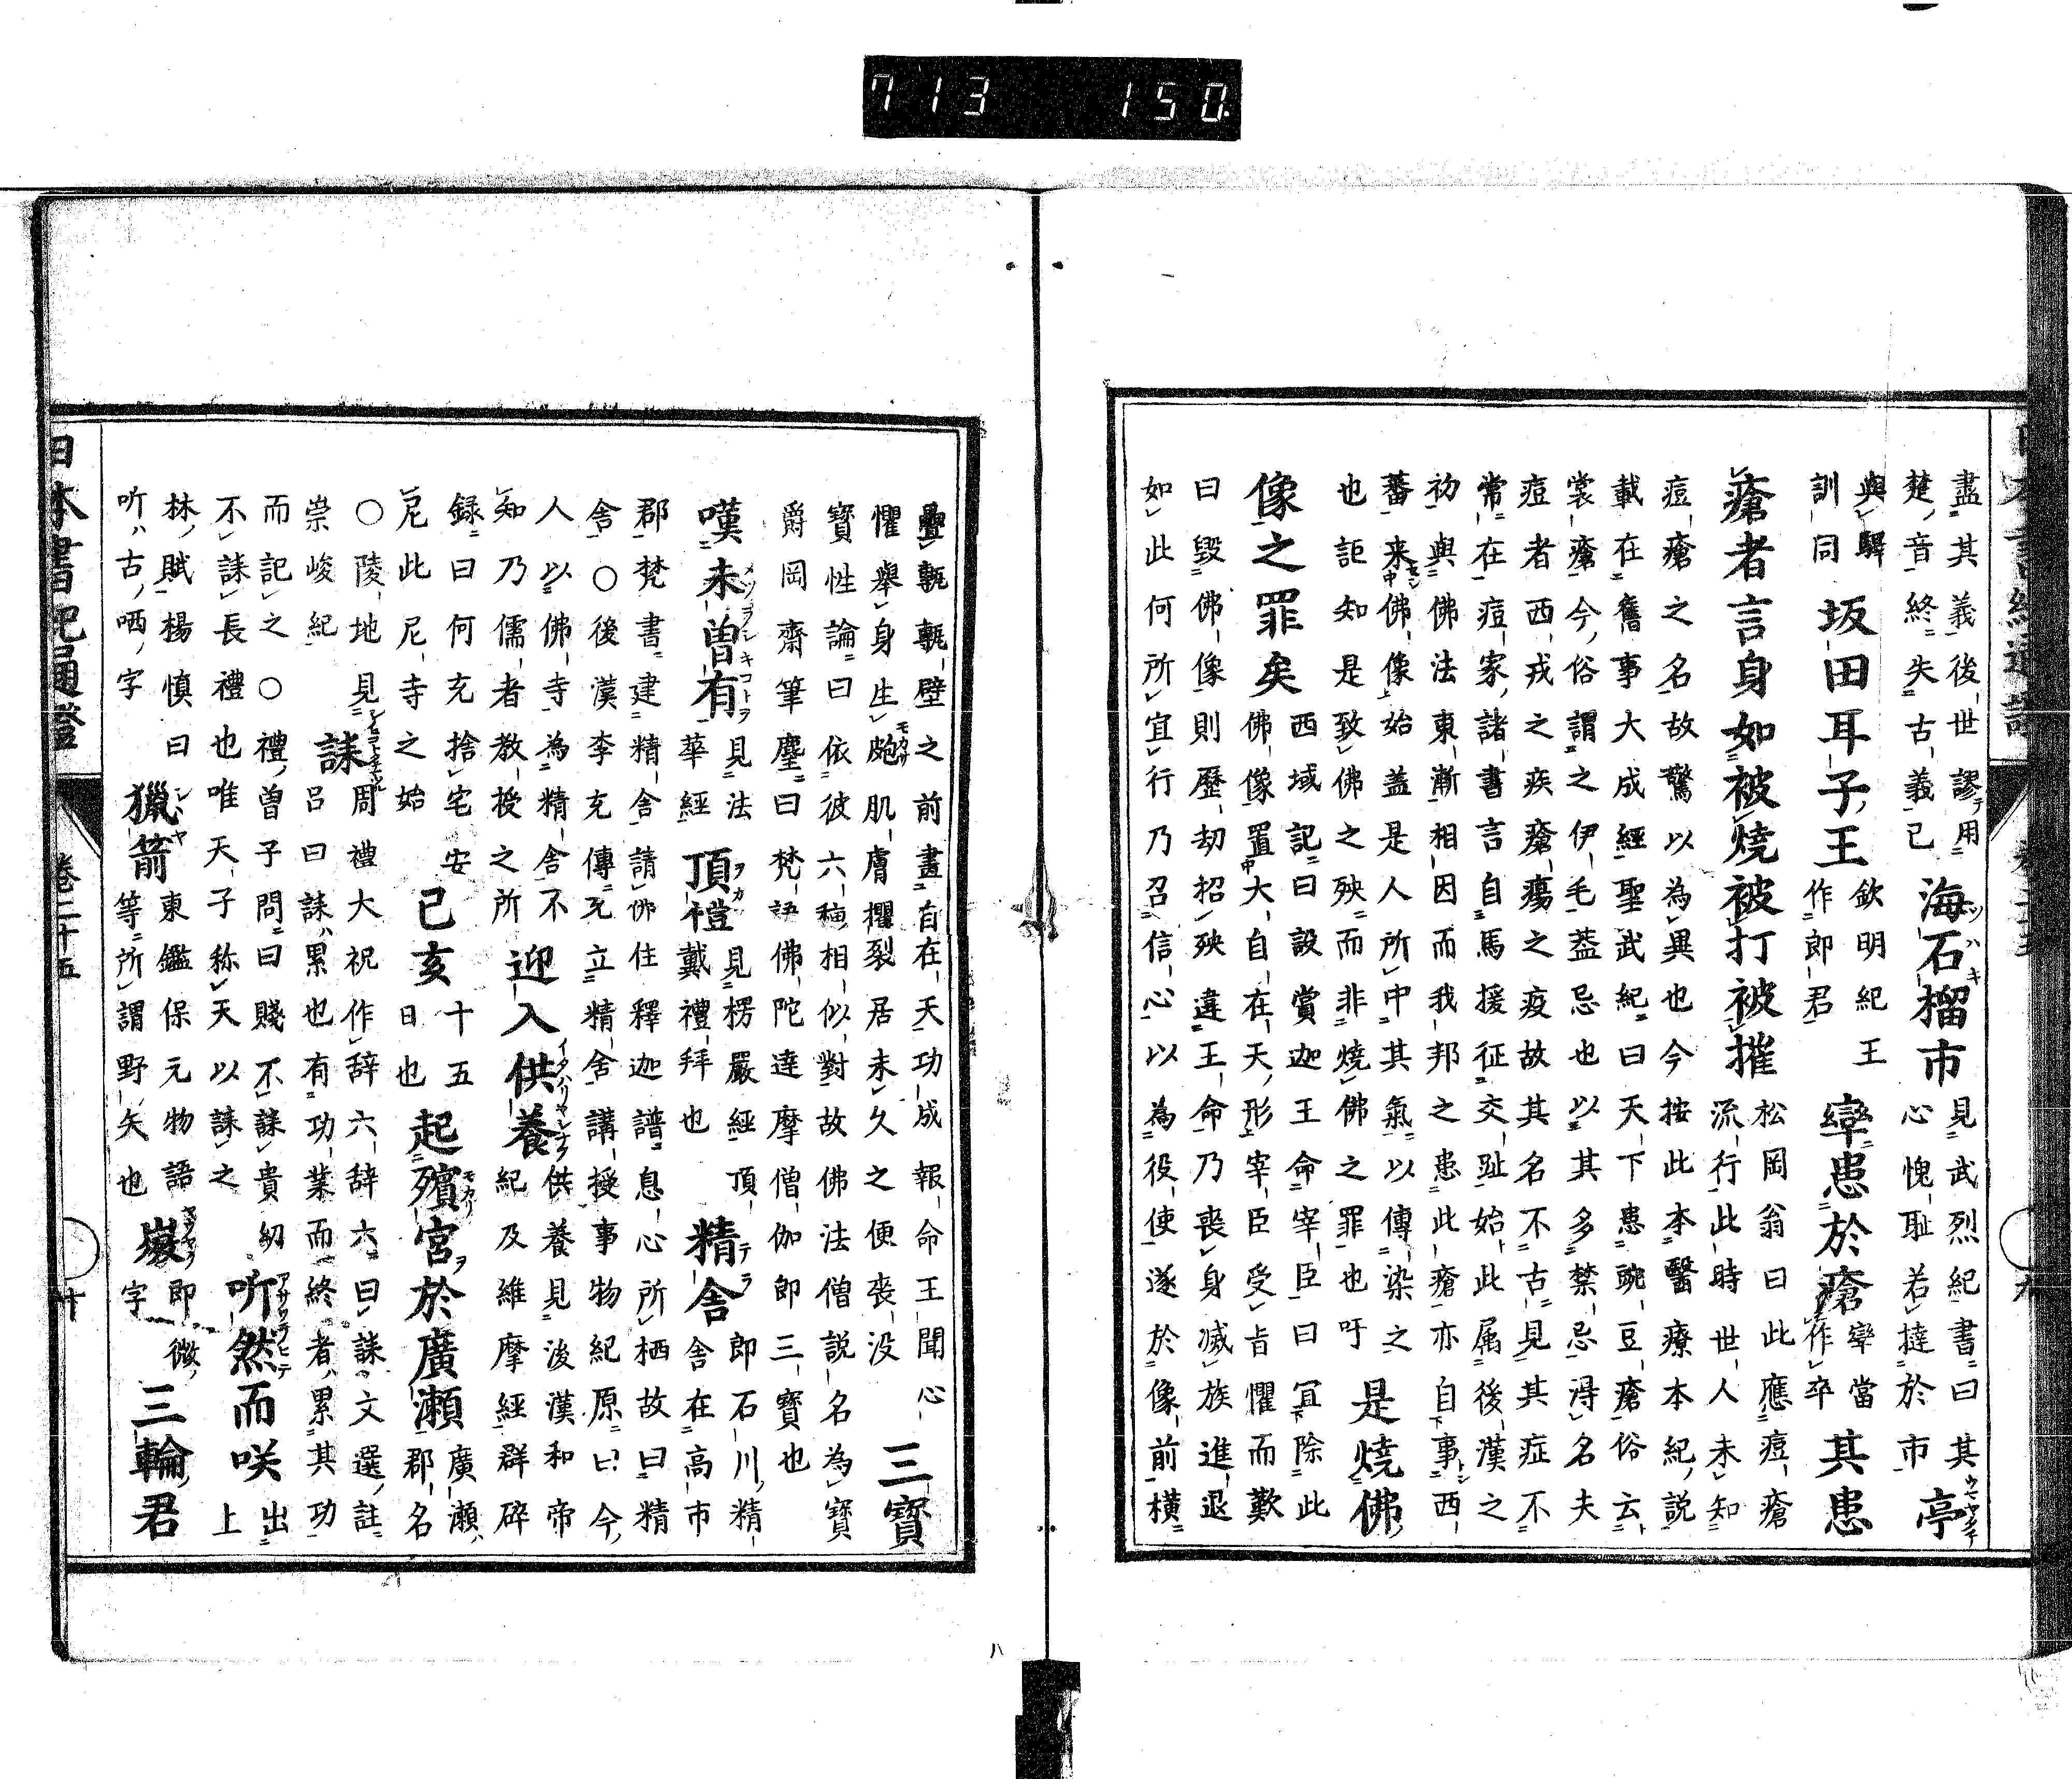 713 150
盡其義後世謬テ用
楚音終失古義已
海石榴市
ツハキ
見武烈紀書曰其
心愧耻若撻於市
亭
ウマヤタチ
與驛
訓同
坂田耳子王
欽明紀王
作郎君
犖患於瘡
犖當
作卒
其患
瘡者言身如被燒被打被摧
松岡翁曰此應痘瘡
流行此時世人未知
痘瘡之名故驚以為異也今按此本醫療本紀説
載在舊事大成經聖武紀曰天下患豌豆瘡俗云
裳瘡今俗謂之伊毛蓋忌也以其多禁忌得名夫
痘者西戎之疾瘡瘍之疫故其名不古見其症不
常在痘家諸書言自馬援征交趾始此属後漢之
初與佛法東漸相因而我邦之患此瘡亦自事西
蕃来佛像始蓋是人所中其氣以傳染之
也詎知是致佛之殃而非燒佛之罪也吁
是燒佛
像之罪矣
西域記曰設賞迦王命宰臣曰冝除此
佛像置大自在天形宰臣受㫖懼而歎
曰毀佛像則歷劫招殃違王命乃喪身滅族進退
如此何所宜行乃召信心以為役使遂於像前橫
壘甎甎壁之前畫自在天功成報命王聞心
懼舉身生皰肌膚攫裂居未久之便喪没
モカサ
三寳
寳性論曰依彼六種相似對故佛法僧説名為寳
爵岡齋筆麈曰梵語佛陀達摩僧伽即三寳也
嘆未曽有
メツラシキコトヲ
見法
華經
頂禮
ヲカ
見楞嚴經頂
戴禮拜也
精舎
テラ
即石川精
舎在高市
郡梵書建精舎請佛住釋迦譜息心所栖故曰精
舎○後漢李充傳充立精舎講授事物紀原曰今
人以佛寺為精舎不
知乃儒者教授之所
迎入供養
イタハリヤシナフ
供養見後漢和帝
紀及維摩經群碎
録曰何充捨宅安
尼此尼寺之始
己亥
十五
日也
起殯宮於廣瀬
モカリ
廣瀬
郡名
○陵地見
崇峻紀
誄
シノヒコトタテマツル
周禮大祝作辞六辞六曰誄文選註
呂曰誄累也有功業而終者累其功
而記之○禮曽子問曰賤不誄貴幼
不誄長禮也唯天子称天以誄之
听然而咲
アサワラヒテ
出
上
林賦楊慎曰
听古哂字
獵箭
シヽヤ
東鑑保元物語
等所謂野矢也
嶽
即微
字
三輪君
日本書紀通證
卷二十五
十
八